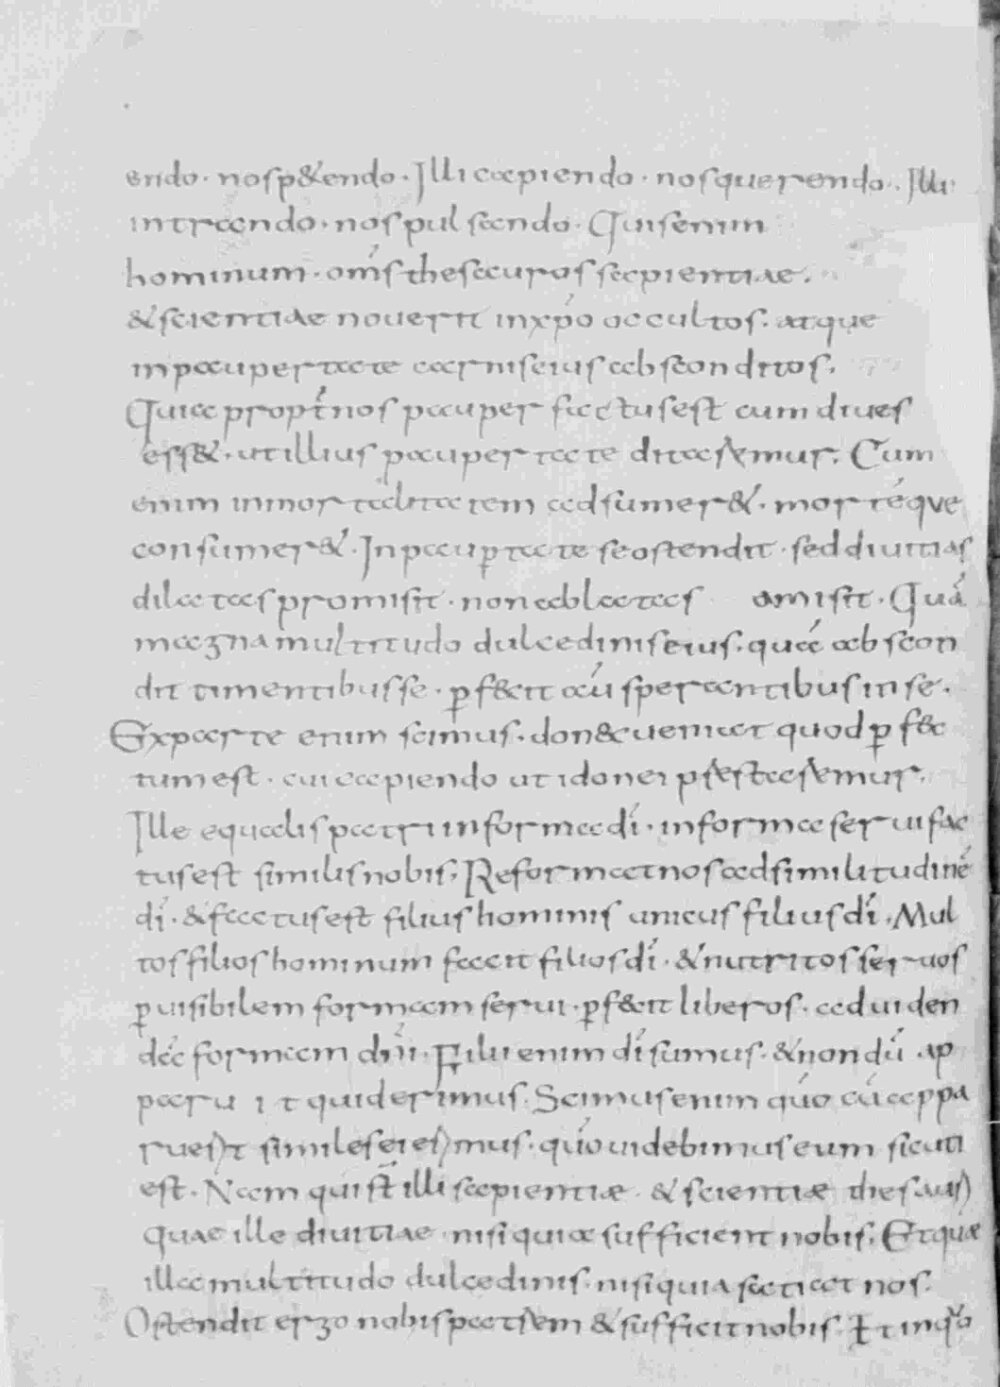 endo · nos p&endo · Illi capiendo · nos querendo · Illi
intrando · nos pulsando · Quis enim
hominum · om̄s thesauros sapientiae ·
& scientiae noverit in xp̄o occultos · atque
in paupertate carnis eius absconditos ·
Quia propt̄ nos pauper factus est cum dives
ess& · ut illius paupertate ditaremur · Cum
enim inmortalitatem adsumer& · mortēque
consumer& · In paup̄tate se ostendit · sed divitias
dilatas promisit · non ablatas amisit · Quā
magna multitudo dulcedinis eius · quā abscon
dit timentibus se · p̄fecit aū sperantibus in se ·
Ex parte enim scimus · donec veniat quod p̄fec
tum est · cui capiendo ut idonei prestaremur ·
Ille equalis patri in forma dī · in forma servi fac
tus est similis nobis · Reformat nos ad similitudinē
dī · & factus est filius hominis unicus filius dī · Mul
tos filios hominum facit filios dī · & nutritos servos
p̄ visibilem formam servi · p̄fecit liberos · ad viden
dā formam dn̄i · Filii enim dī sumus · & nondū ap
paruit quid erimus · Scimus enim quō cū appa
ruerit similes ei erimus · quō videbimus eum sicuti
est · Nam qui s̄t illi sapientiæ · & scientiæ thesauri
Quae ille divitiae · nisi quia sufficient nobis · Et quæ
illa multitudo dulcedinis · nisi quia satiat nos ·
Ostendit ergo nobis patrem & sufficit nobis · Et in